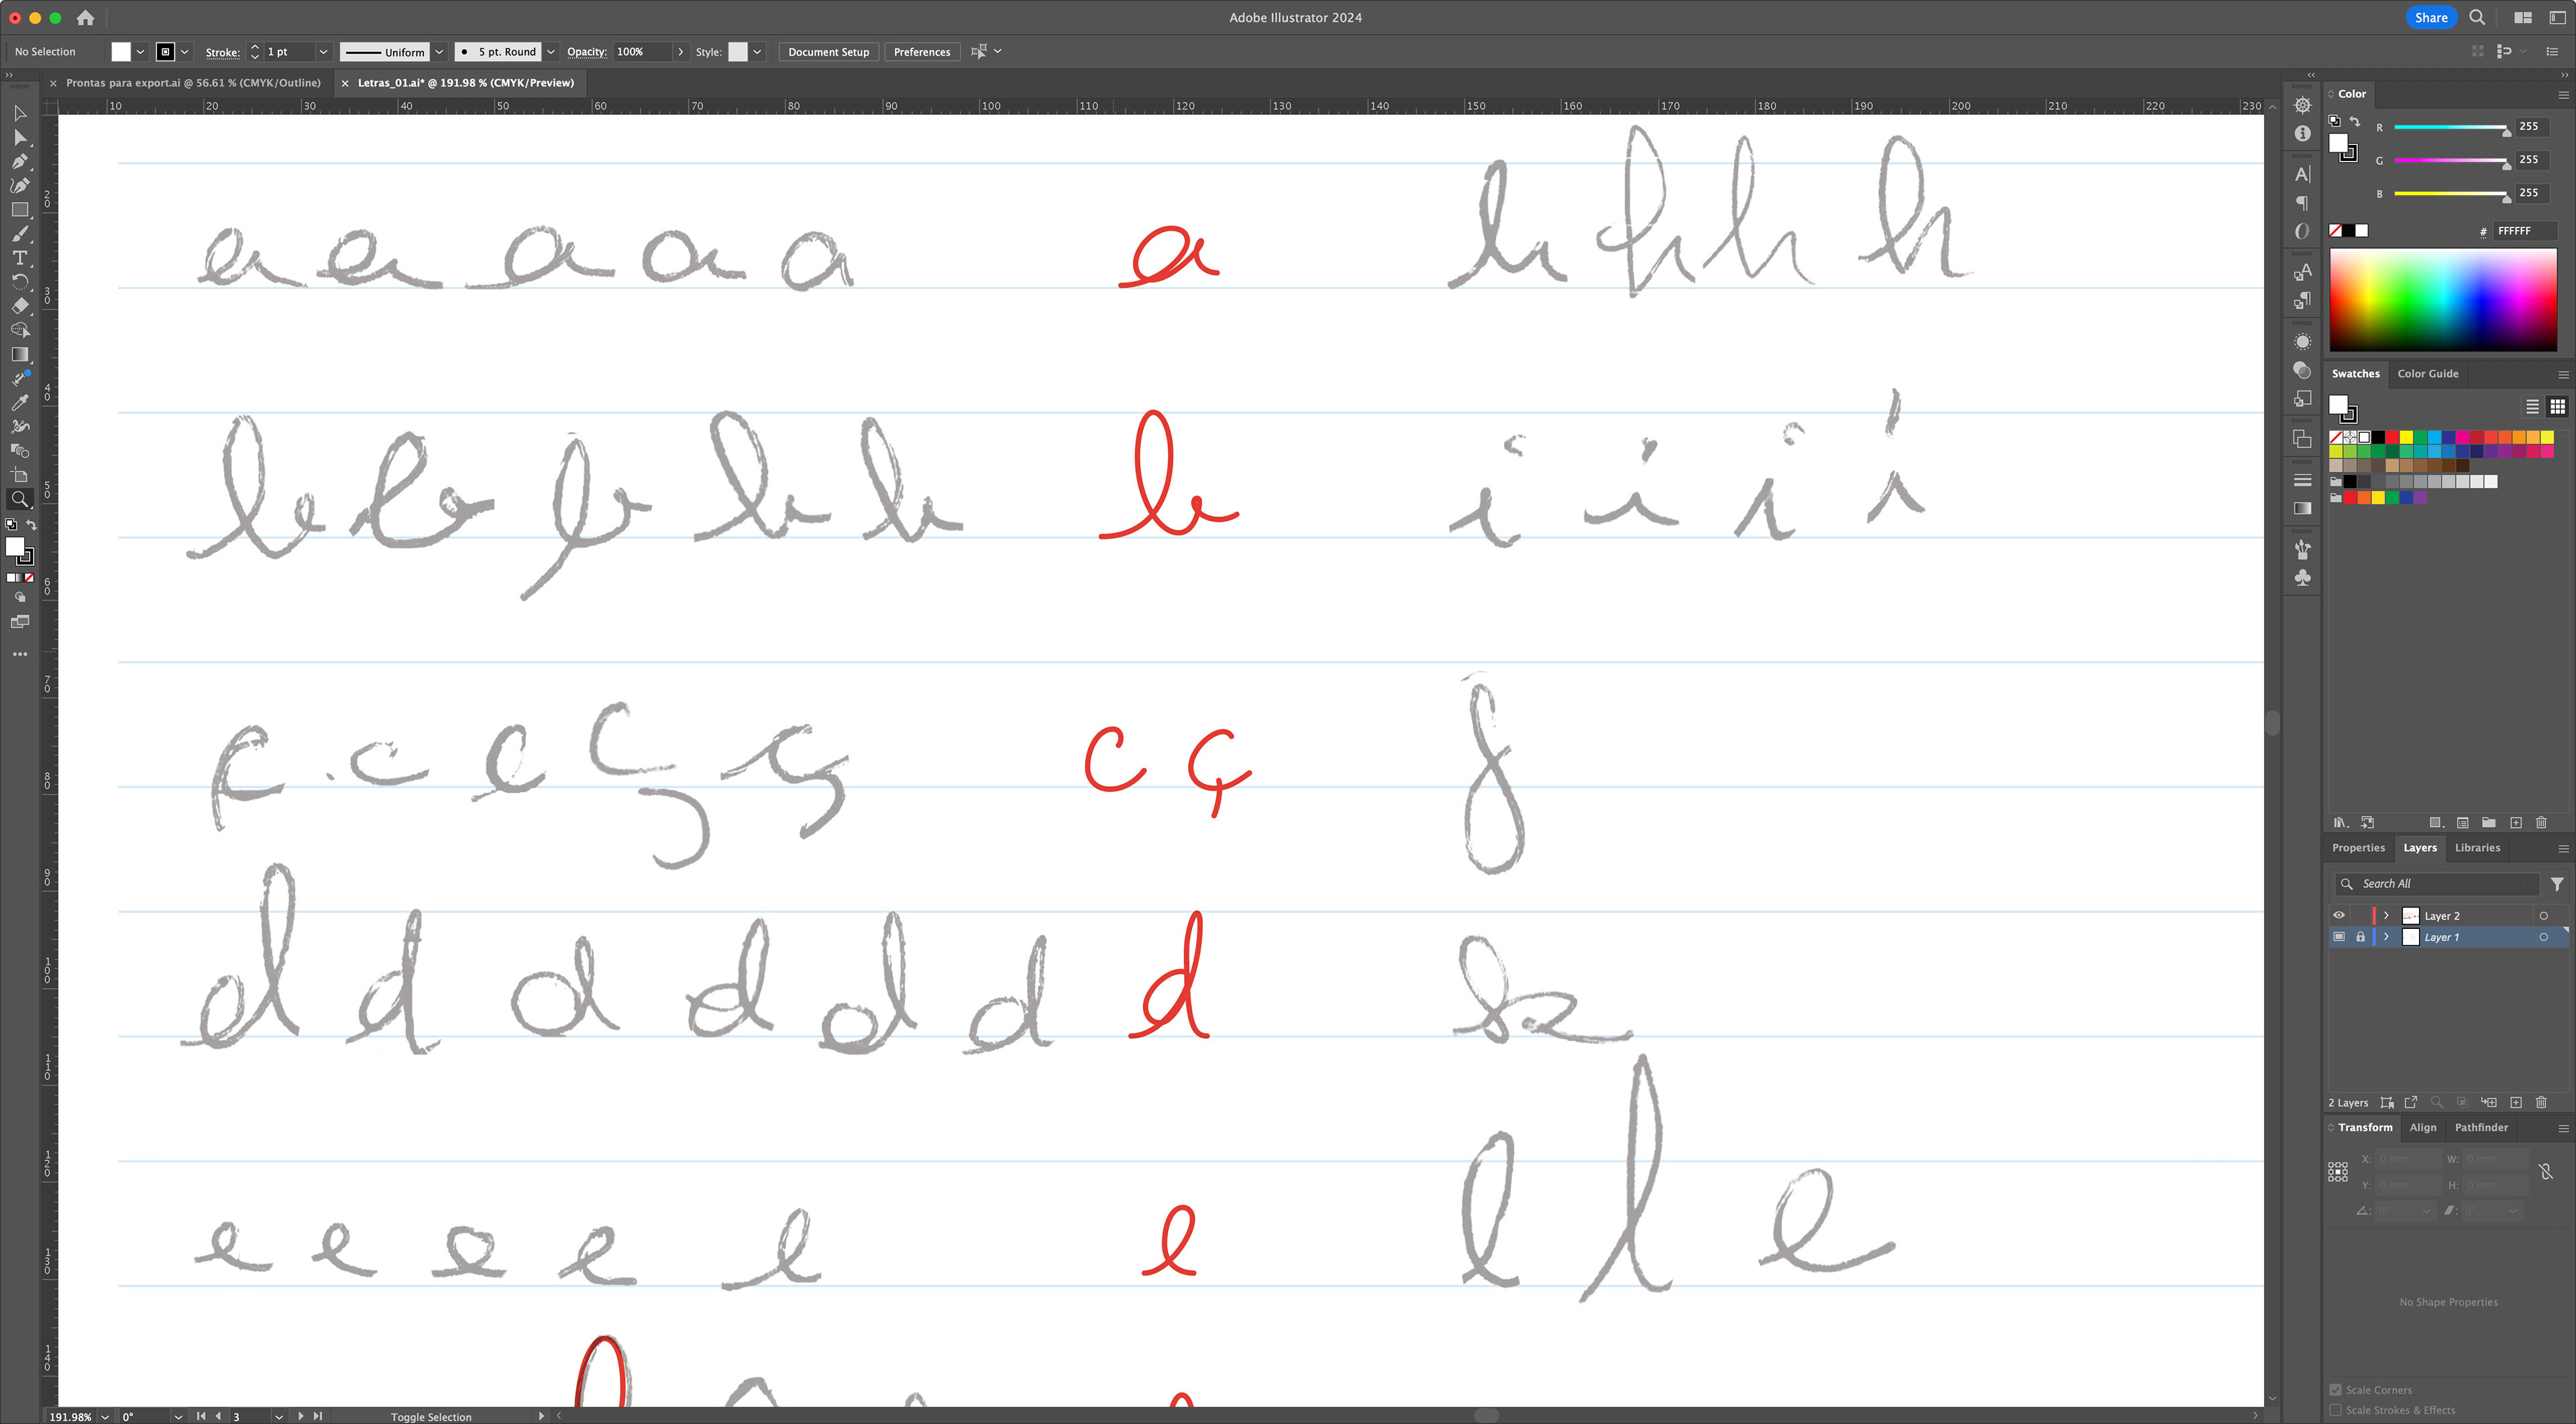 Adobe Illustrator 2024
Share
No Selection
Stroke: 1 pt Uniform 5 pt. Round Opacity: 100% Style: Document Setup Preferences
× Prontas para export.ai @ 56.61 % (CMYK/Outline) × Letras_01.ai* @ 191.98 % (CMYK/Preview)
10 20 30 40 50 60 70 80 90 100 110 120 130 140 150 160 170 180 190 200 210 220 230
20 30 40 50 60 70 80 90 100 110 120 130 140
a a a a a a h h h h
b b b b b b i i i i
c c c ç ç c ç
d d d d d d d k
e e e e e e l l e
Color
R 255
G 255
B 255
# FFFFFF
Swatches Color Guide
Properties Layers Libraries
Search All
Layer 2
Layer 1
2 Layers
Transform Align Pathfinder
X: 0 mm W: 0 mm
Y: 0 mm H: 0 mm
0° 0°
No Shape Properties
Scale Corners
Scale Strokes & Effects
191.98% 0° 3 Toggle Selection